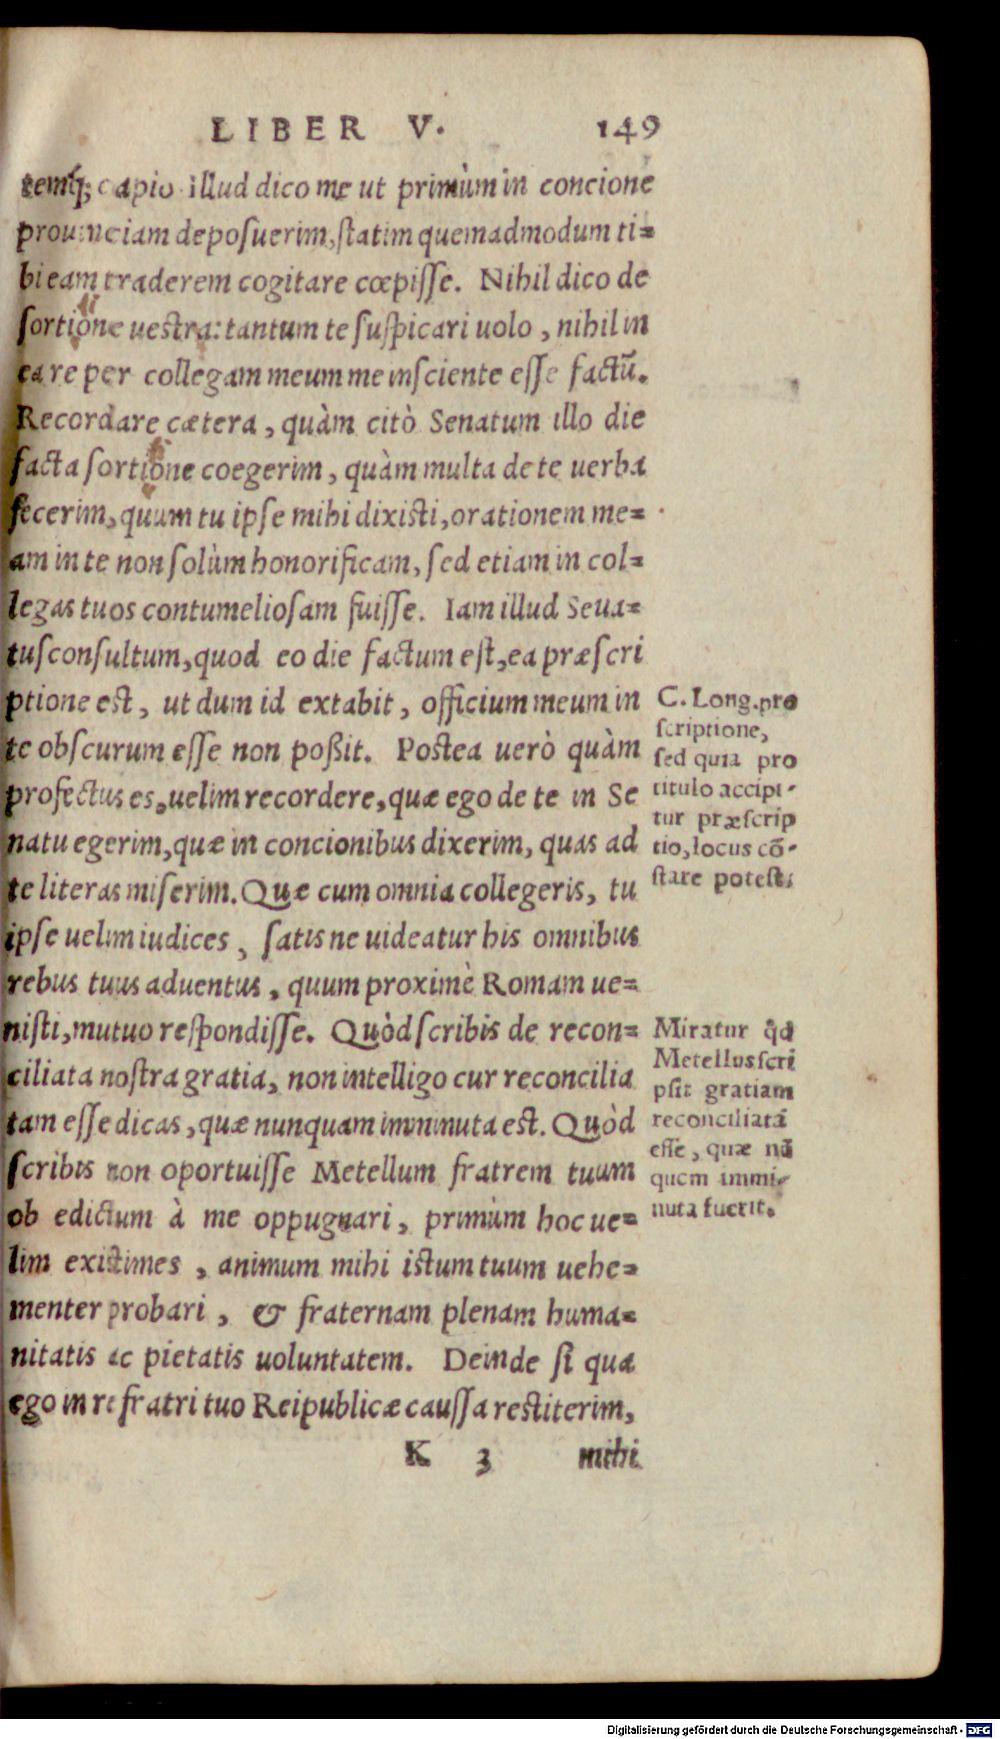 LIBER V. 149
temq́; capio illud dico me ut primùm in concione
prouinciam deposuerim, statim quemadmodum ti=
bi eam traderem cogitare cœpisse. Nihil dico de
sortione uestra: tantum te suspicari uolo, nihil in
ea re per collegam meum me insciente esse factū.
Recordare cætera, quàm citò Senatum illo die
facta sortione coegerim, quàm multa de te uerba
fecerim, quum tu ipse mihi dixisti, orationem me=
am in te non solùm honorificam, sed etiam in col=
legas tuos contumeliosam fuisse. Iam illud Seua=
tusconsultum, quod eo die factum est, ea præscri
ptione est, ut dum id extabit, officium meum in
te obscurum esse non poßit. Postea uerò quàm
profectus es, uelim recordere, quæ ego de te in Se
natu egerim, quæ in concionibus dixerim, quas ad
te literas miserim. Quæ cum omnia collegeris, tu
ipse uelim iudices, satis ne uideatur his omnibus
rebus tuus aduentus, quum proximè Romam ue=
nisti, mutuo respondisse. Quòd scribis de recon=
ciliata nostra gratia, non intelligo cur reconcilia
tam esse dicas, quæ nunquam imminuta est. Quòd
scribis non oportuisse Metellum fratrem tuum
ob edictum à me oppugnari, primùm hoc ue=
lim existimes, animum mihi istum tuum uehe=
menter probari, & fraternam plenam huma=
nitatis ac pietatis uoluntatem. Deinde si qua
ego in re fratri tuo Reipublicæ caussa restiterim,
K 3 mihi
C. Long. pro
scriptione,
sed quia pro
titulo accipi-
tur præscrip
tio, locus cō-
stare potest.
Miratur q̃d
Metellus scri
psit gratiam
reconciliatā
esse, quæ nū
quem immi-
nuta fuerit.
Digitalisierung gefördert durch die Deutsche Forschungsgemeinschaft - DFG